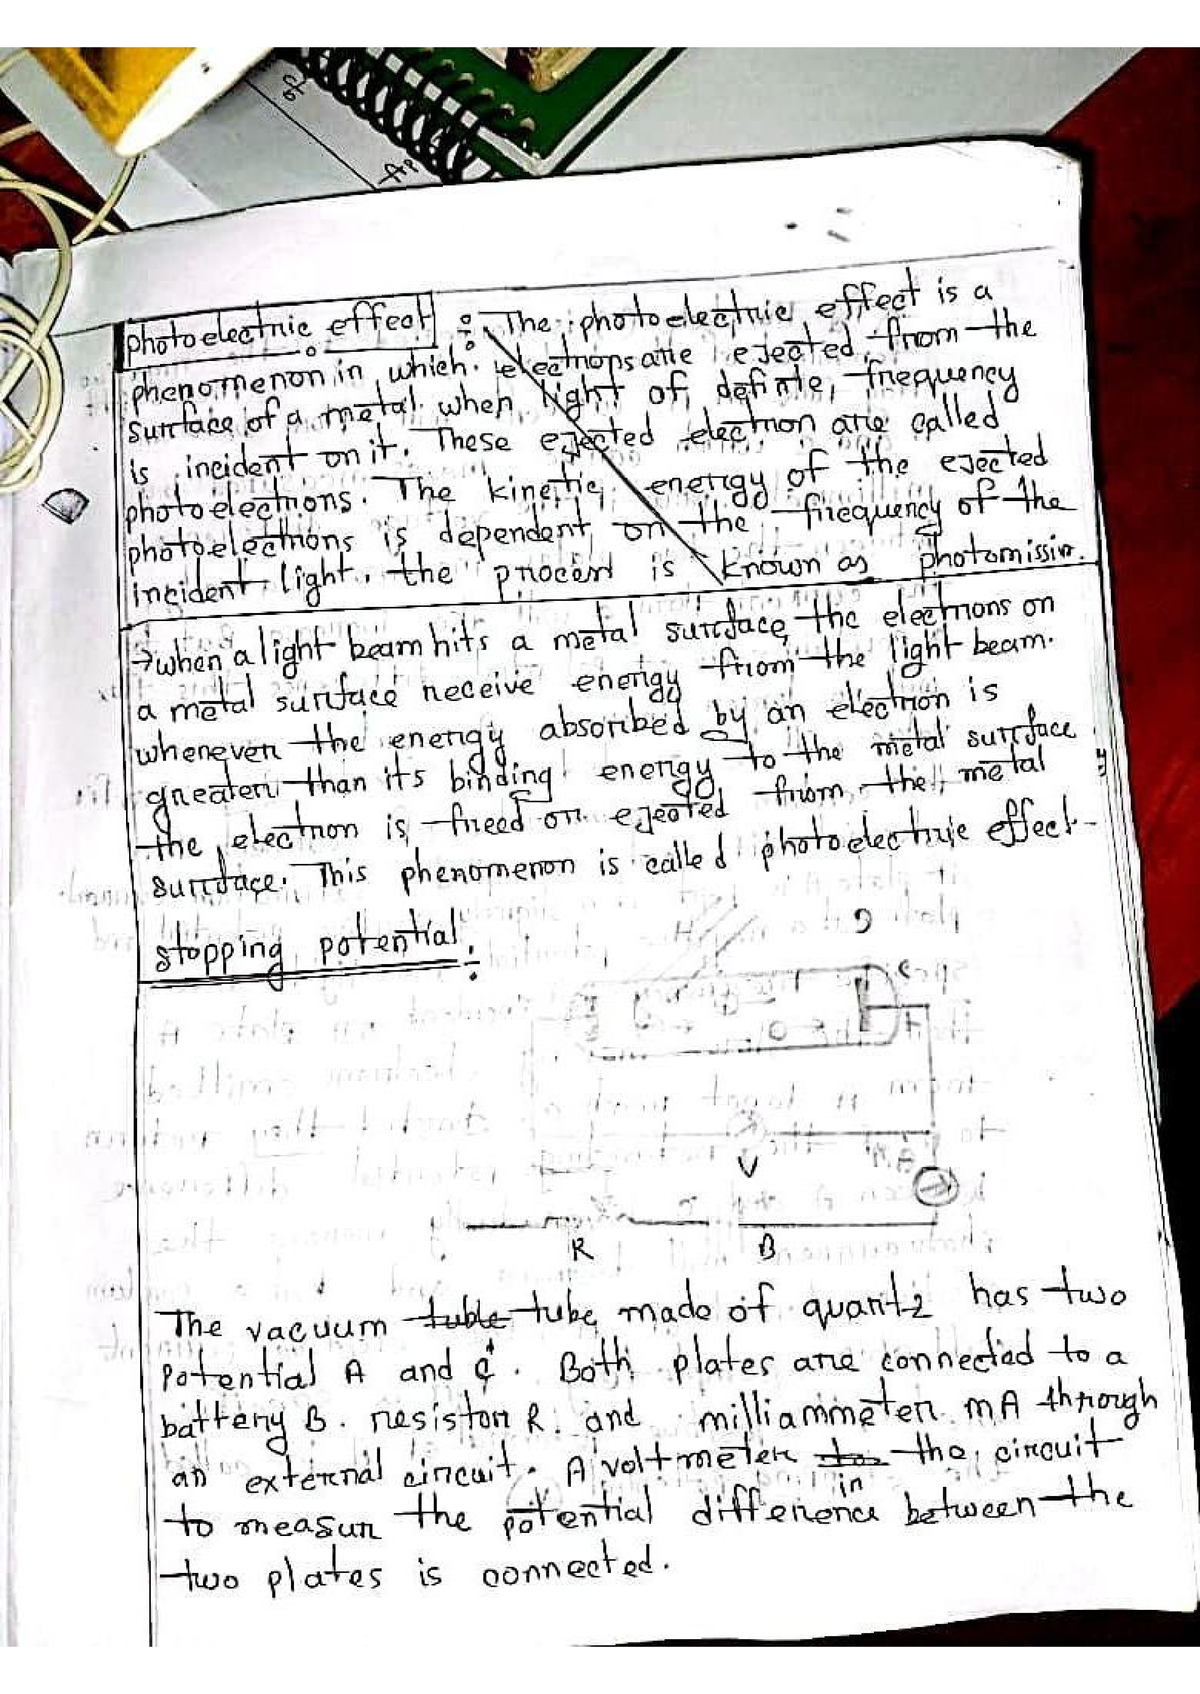 of
photoelectric effect : The photoelectric effect is a
phenomenon in which electrons are ejected from the
surface of a metal when light of definte, frequency
is incident on it. These ejected electron are called
photoelectrons. The kinetic energy of the ejected
photoelectrons is dependent on the frequency of the
incident light. the process is known as photomissin.
→ when a light beam hits a metal surface, the electrons on
a metal surface receive energy from the light beam.
whenever the energy absorbed by an electron is
greater than its binding energy to the metal surface
the electron is freed or ejected from the metal
surface. This phenomenon is called photoelectric effect
stopping potential :
V
R B
The vacuum tuble tube made of quartz has two
potential A and C. Both plates are connected to a
battery B. resistor R and milliammeter mA through
an external circuit. A voltmeter to the circuit
in
to measur the potential difference between the
two plates is connected.